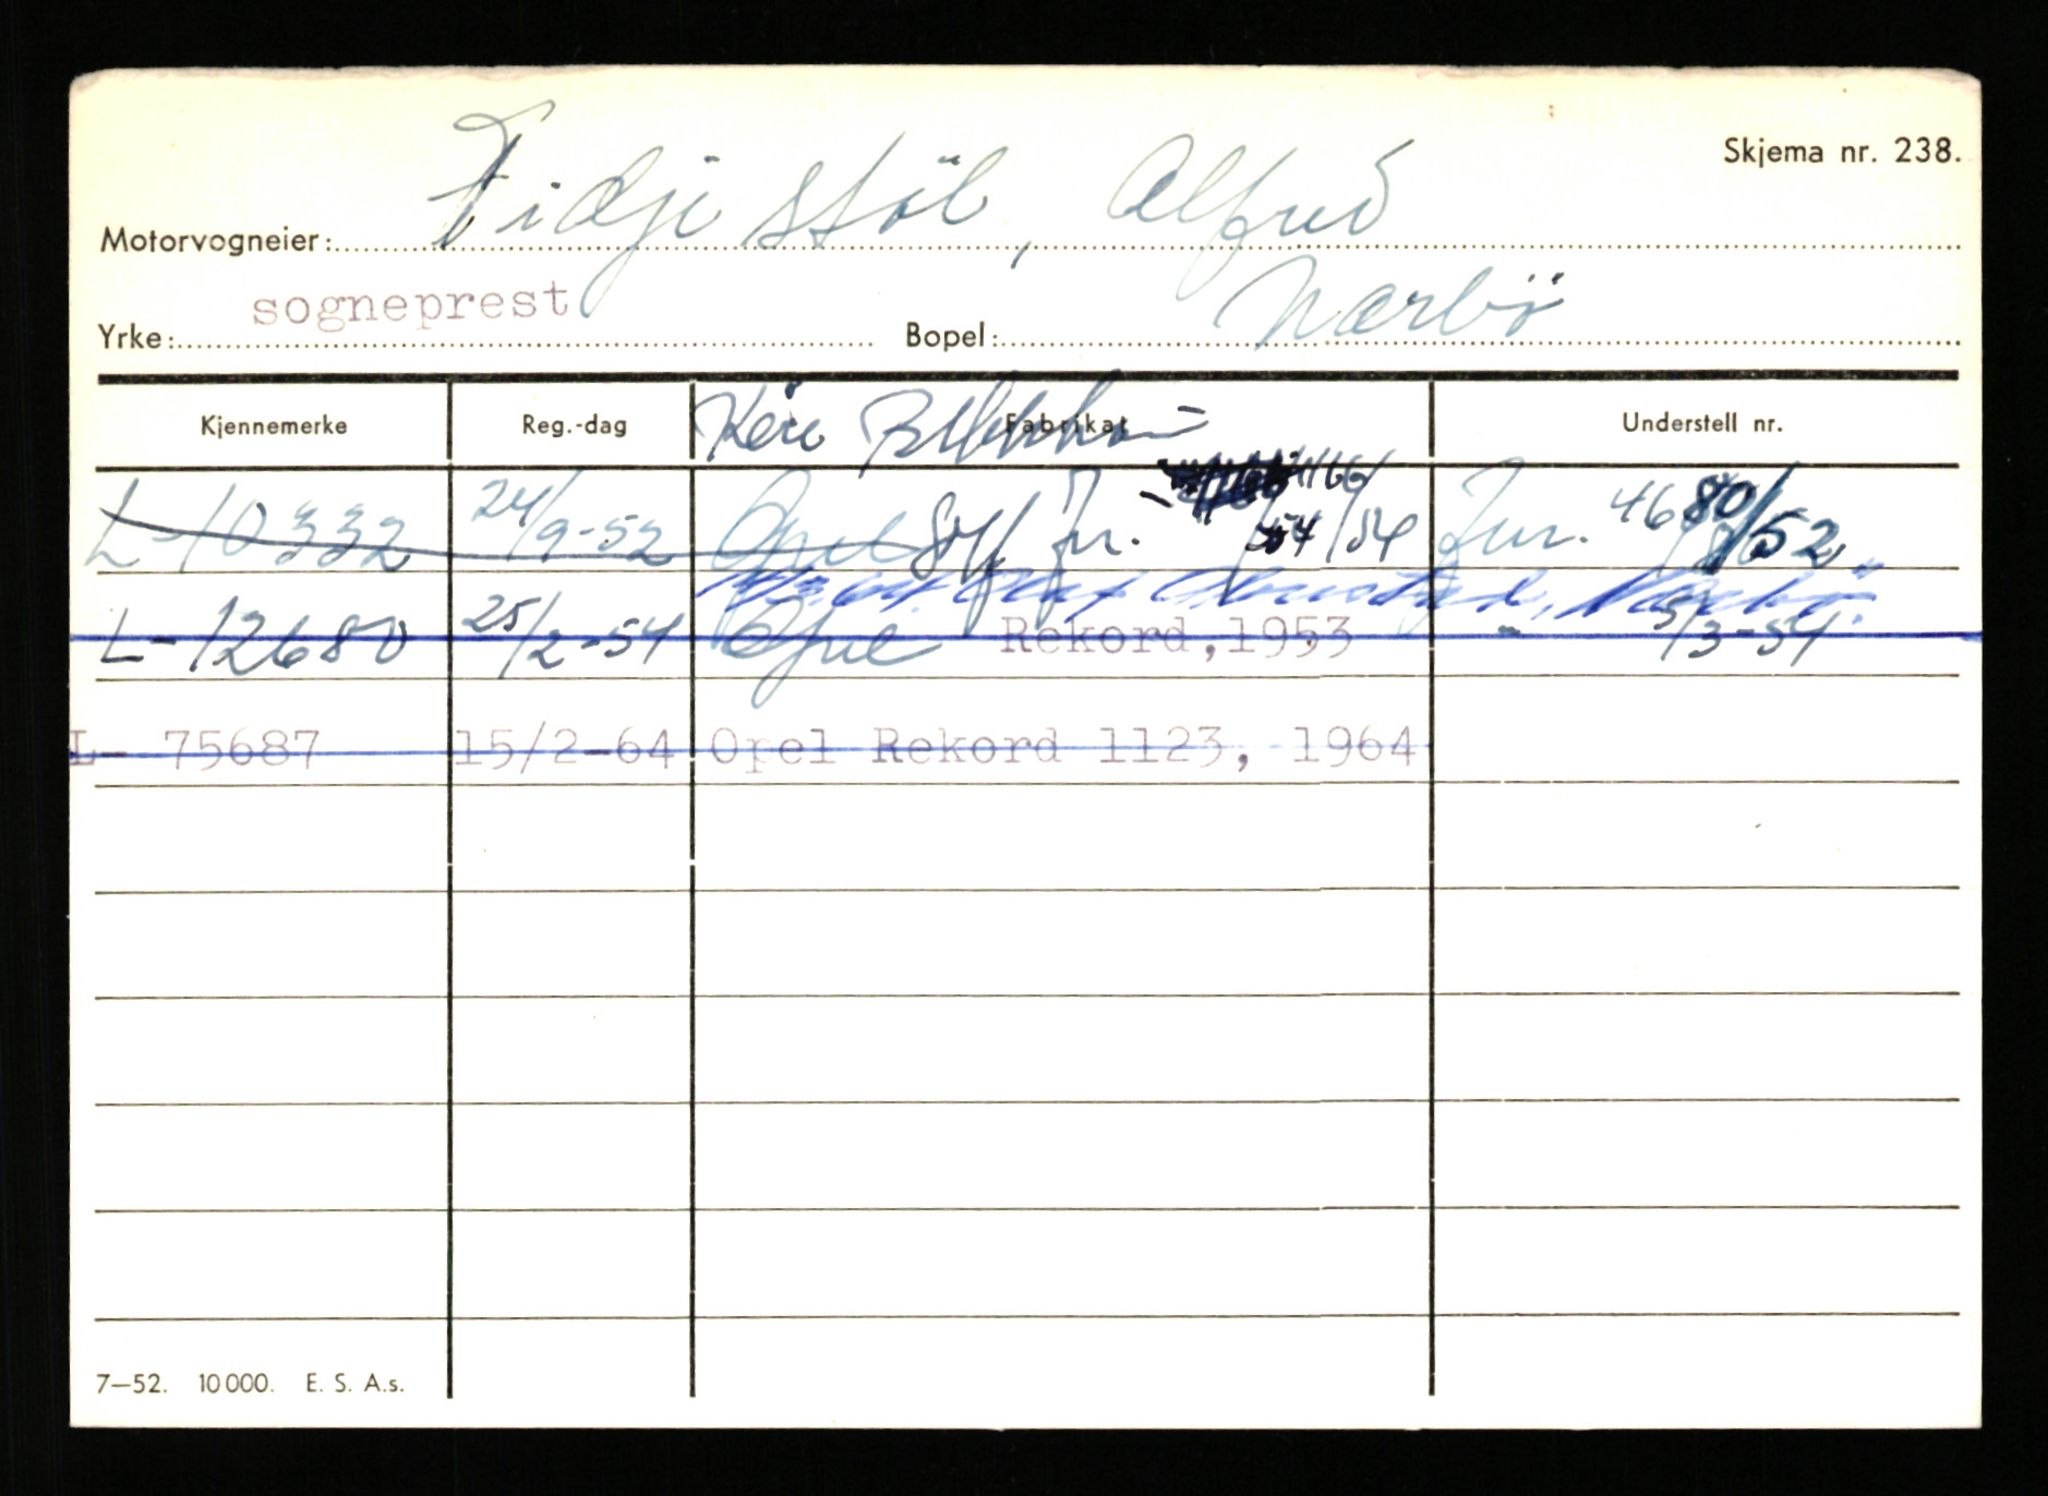 Skjema nr. 238.
Motorvogneier: Fidjestöl, Alfred
Yrke: sogneprest Bopel: Nærbö
Kjennemerke Reg.-dag Fabrikat Understell nr.
L-10332 24/9-52 Opel 84/ 54/54 4680/52
L-12680 25/2-54 Opel Rekord, 1953 5/3-54
L- 75687 15/2-64 Opel Rekord 1123, 1964
7-52. 10000. E. S. A.s.